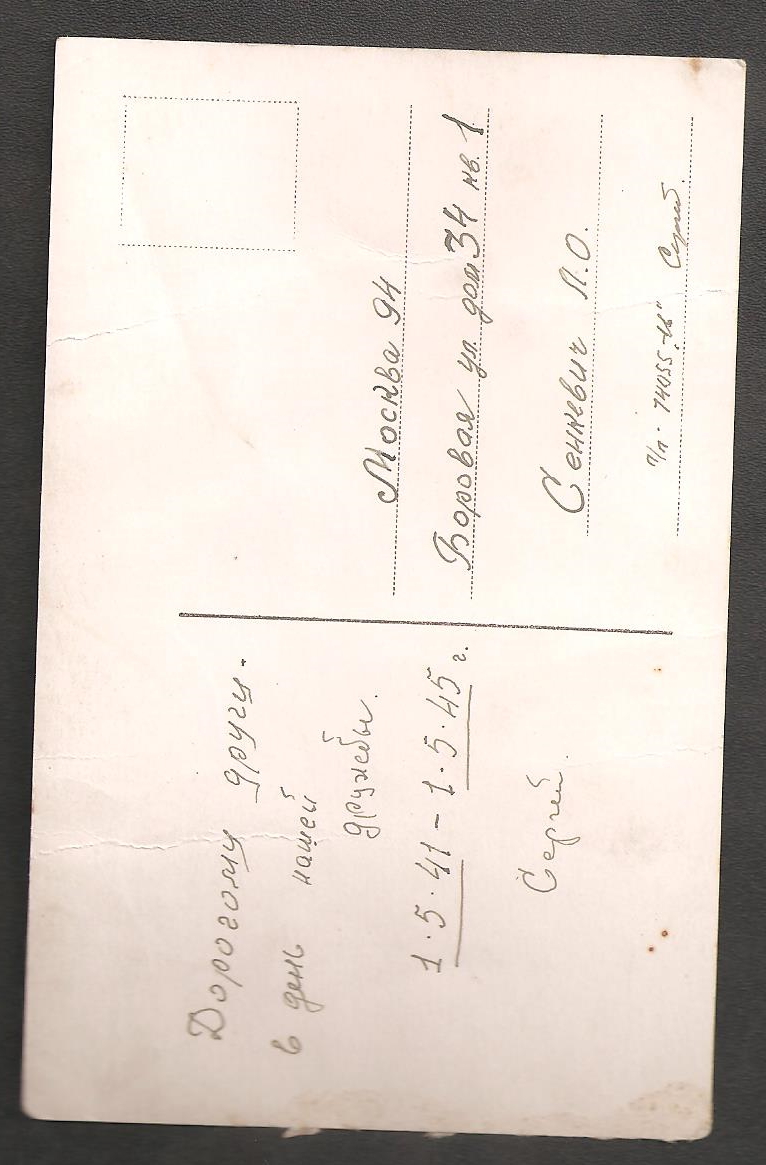 Дорогому другу -
в день нашей
дружбы.
1.5.41 - 1.5.45 г.
Сергей.
Москва 94
Боровая ул. дом 34 кв. 1
Сенкевич Л.О.
п/п. 74055 „ "